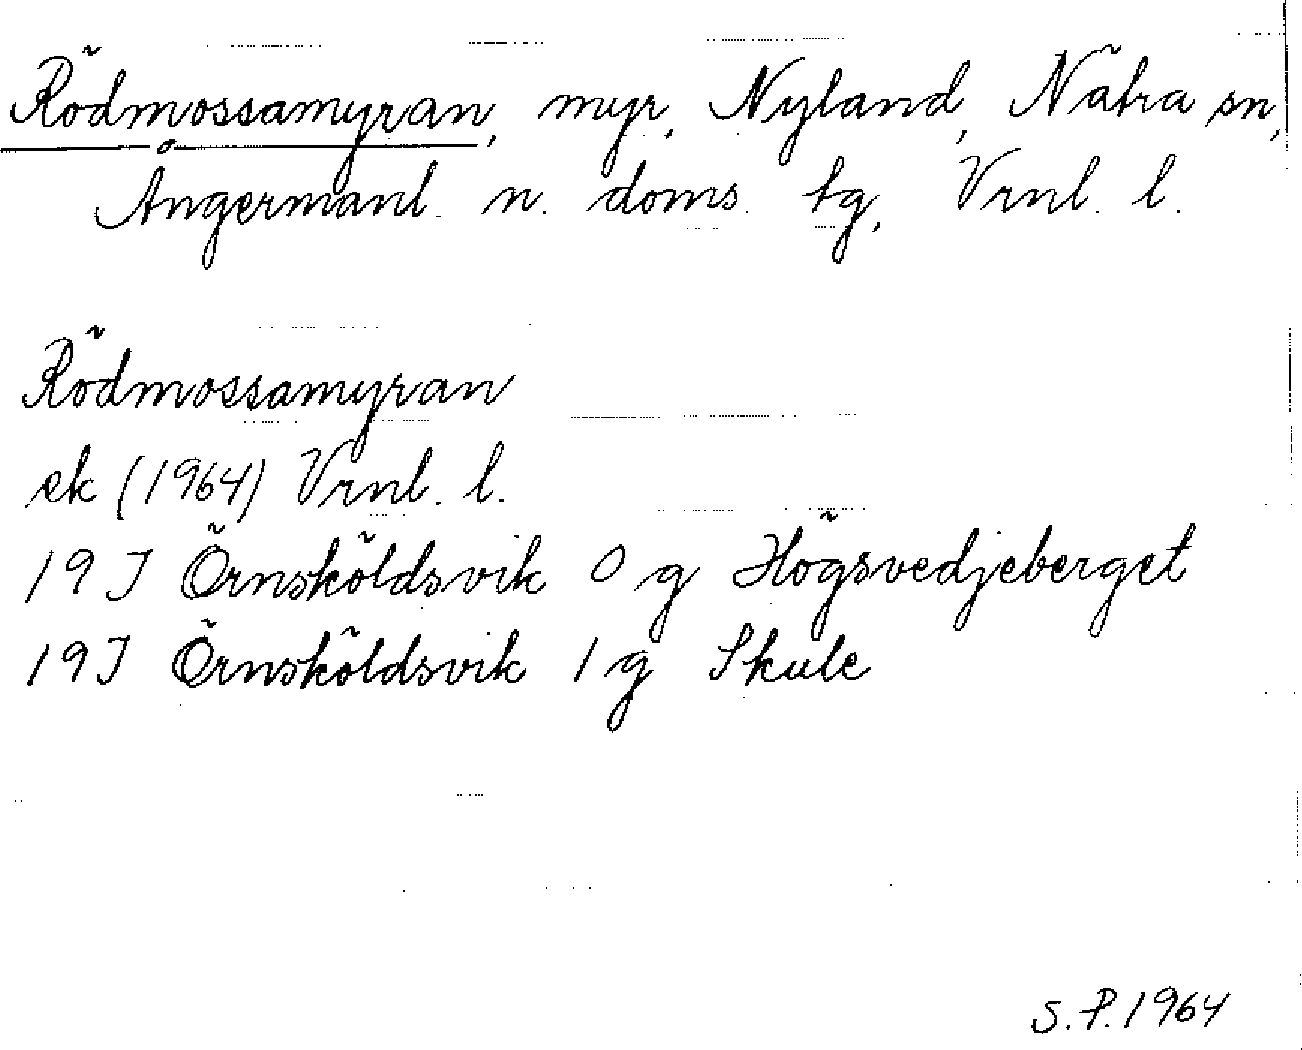 Rödmossamyran, myr, Nyland, Nätra sn,
Ångermanl. n. doms. tg, Vrnl. l.
Rödmossamyran
ek (1964) Vrnl. l.
19J Örnsköldsvik 0 g Högsvedjeberget
19J Örnsköldsvik 1 g Skule
S.P. 1964